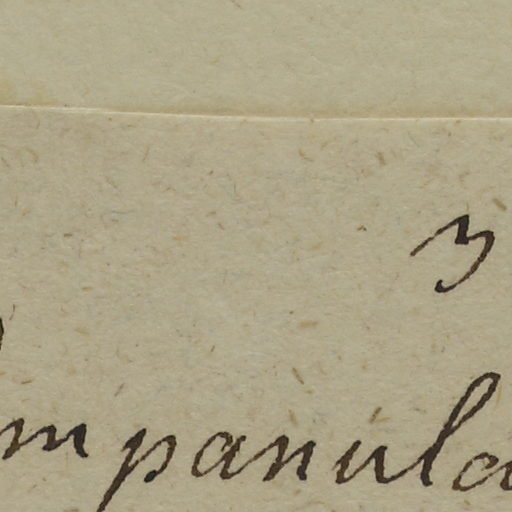 3
mpanula